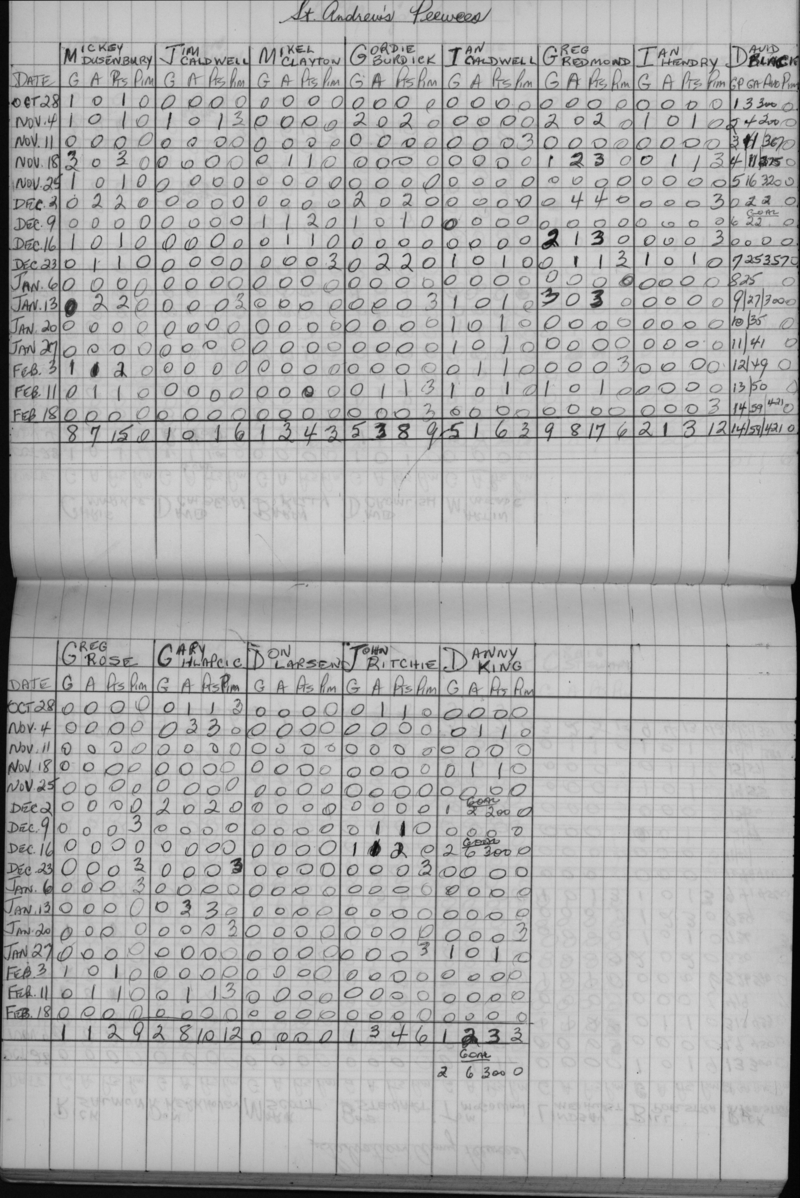 St. Andrew's Peewees
MICKEY DUSENBURY JIM CALDWELL MIKEL CLAYTON GORDIE BURDICK IAN CALDWELL GREG REDMOND IAN HENDRY DAVID BLACK
DATE G A Pts Pim G A Pts Pim G A Pts Pim G A Pts Pim G A Pts Pim G A Pts Pim G A Pts Pim GP GA Ave Pim
OCT 28 1 0 1 0 0 0 0 0 0 0 0 0 0 0 0 0 0 0 0 0 0 0 0 0 0 0 0 0 1 3 300 0
NOV. 4 1 0 1 0 1 0 1 3 0 0 0 0 2 0 2 0 0 0 0 0 2 0 2 0 1 0 1 0 2 4 200 0
NOV. 11 0 0 0 0 0 0 0 0 0 0 0 0 0 0 0 0 0 0 0 3 0 0 0 0 0 0 0 0 3 11 367 0
NOV. 18 3 0 3 0 0 0 0 0 0 1 1 0 0 0 0 0 0 0 0 0 1 2 3 0 0 1 1 3 4 11 275 0
NOV. 25 1 0 1 0 0 0 0 0 0 0 0 0 0 0 0 0 0 0 0 0 0 0 0 0 0 0 0 0 5 16 320 0
DEC. 2 0 2 2 0 0 0 0 0 0 0 0 0 2 0 2 0 0 0 0 0 0 4 4 0 0 0 0 3 0 2 2 0
DEC. 9 0 0 0 0 0 0 0 0 1 1 2 0 1 0 1 0 0 0 0 0 0 0 0 0 0 0 0 0 6 22 0
DEC 16 1 0 1 0 0 0 0 0 0 1 1 0 0 0 0 0 0 0 0 0 2 1 3 0 0 0 0 3 0 0 0 0
DEC. 23 0 1 1 0 0 0 0 0 0 0 0 3 0 2 2 0 1 0 1 0 0 1 1 3 1 0 1 0 7 25 357 0
JAN. 6 0 0 0 0 0 0 0 0 0 0 0 0 0 0 0 0 0 0 0 0 0 0 0 0 0 0 0 0 8 25
JAN. 13 0 2 2 0 0 0 0 3 0 0 0 0 0 0 0 3 1 0 1 0 3 0 3 0 0 0 0 0 9/27/300 0
JAN. 20 0 0 0 0 0 0 0 0 0 0 0 0 0 0 0 0 1 0 1 0 0 0 0 0 0 0 0 0 10/35
JAN 27 0 0 0 0 0 0 0 0 0 0 0 0 0 0 0 0 1 0 1 0 0 0 0 0 0 0 0 0 11/41
FEB. 3 1 1 2 0 0 0 0 0 0 0 0 0 0 0 0 0 0 1 1 0 0 0 0 3 0 0 0 0 12/49 0
FEB. 11 0 1 1 0 0 0 0 0 0 0 0 0 0 1 1 3 1 0 1 0 1 0 1 0 0 0 0 0 13/50 0
FEB 18 0 0 0 0 0 0 0 0 0 0 0 0 0 0 0 3 0 0 0 0 0 0 0 0 0 0 0 3 14/59/421
8 7 15 0 1 0 1 6 1 3 4 3 5 3 8 9 5 1 6 3 9 8 17 6 2 1 3 12 14/59/421 0
GREG ROSE GARY HLAPCIC DON LARSEN JOHN RITCHIE DANNY KING
DATE G A Pts Pim G A Pts Pim G A Pts Pim G A Pts Pim G A Pts Pim
OCT 28 0 0 0 0 0 1 1 3 0 0 0 0 0 1 1 0 0 0 0 0
NOV. 4 0 0 0 0 0 3 3 0 0 0 0 0 0 0 0 0 0 1 1 0
NOV. 11 0 0 0 0 0 0 0 0 0 0 0 0 0 0 0 0 0 0 0 0
NOV. 18 0 0 0 0 0 0 0 0 0 0 0 0 0 0 0 0 0 1 1 0
NOV 25 0 0 0 0 0 0 0 0 0 0 0 0 0 0 0 0 0 0 0 0
DEC 2 0 0 0 0 2 0 2 0 0 0 0 0 0 0 0 0 1 2 200 0
DEC. 9 0 0 0 3 0 0 0 0 0 0 0 0 0 1 1 0 0 0 0 0
DEC. 16 0 0 0 0 0 0 0 0 0 0 0 0 1 1 2 0 2 6 300 0
DEC. 23 0 0 0 3 0 0 0 3 0 0 0 0 0 0 0 3 0 0 0 0
JAN. 6 0 0 0 3 0 0 0 0 0 0 0 0 0 0 0 0 0 0 0 0
JAN. 13 0 0 0 0 0 3 3 0 0 0 0 0 0 0 0 0 0 0 0 0
JAN. 20 0 0 0 0 0 0 0 3 0 0 0 0 0 0 0 0 0 0 0 3
JAN 27 0 0 0 0 0 0 0 0 0 0 0 0 0 0 0 3 1 0 1 0
FEB 3 1 0 1 0 0 0 0 0 0 0 0 0 0 0 0 0 0 0 0 0
FEB. 11 0 1 1 0 0 1 1 3 0 0 0 0 0 0 0 0 0 0 0 0
FEB. 18 0 0 0 0 0 0 0 0 0 0 0 0 0 0 0 0 0 0 0 0
1 1 2 9 2 8 10 12 0 0 0 0 1 3 4 6 1 2 3 3
2 6 300 0